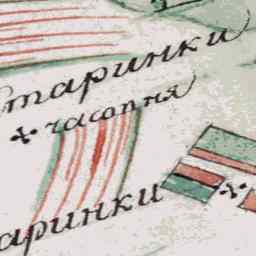 Старинки
часопня
аринки